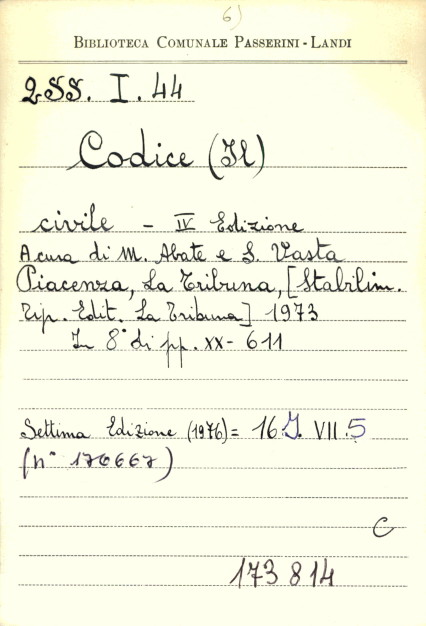 6)
BIBLIOTECA COMUNALE PASSERINI - LANDI
2SS. I. 44
Codice (Il)
civile - IV Edizione
A cura di M. Abate e S. Vasta
Piacenza, La Tribuna, [Stabilim.
Tip. Edit. La Tribuna] 1973
In 8° di pp. XX - 611
Settima Edizione (1976) = 16 J. VII. 5
(n° 176667)
C
173 814